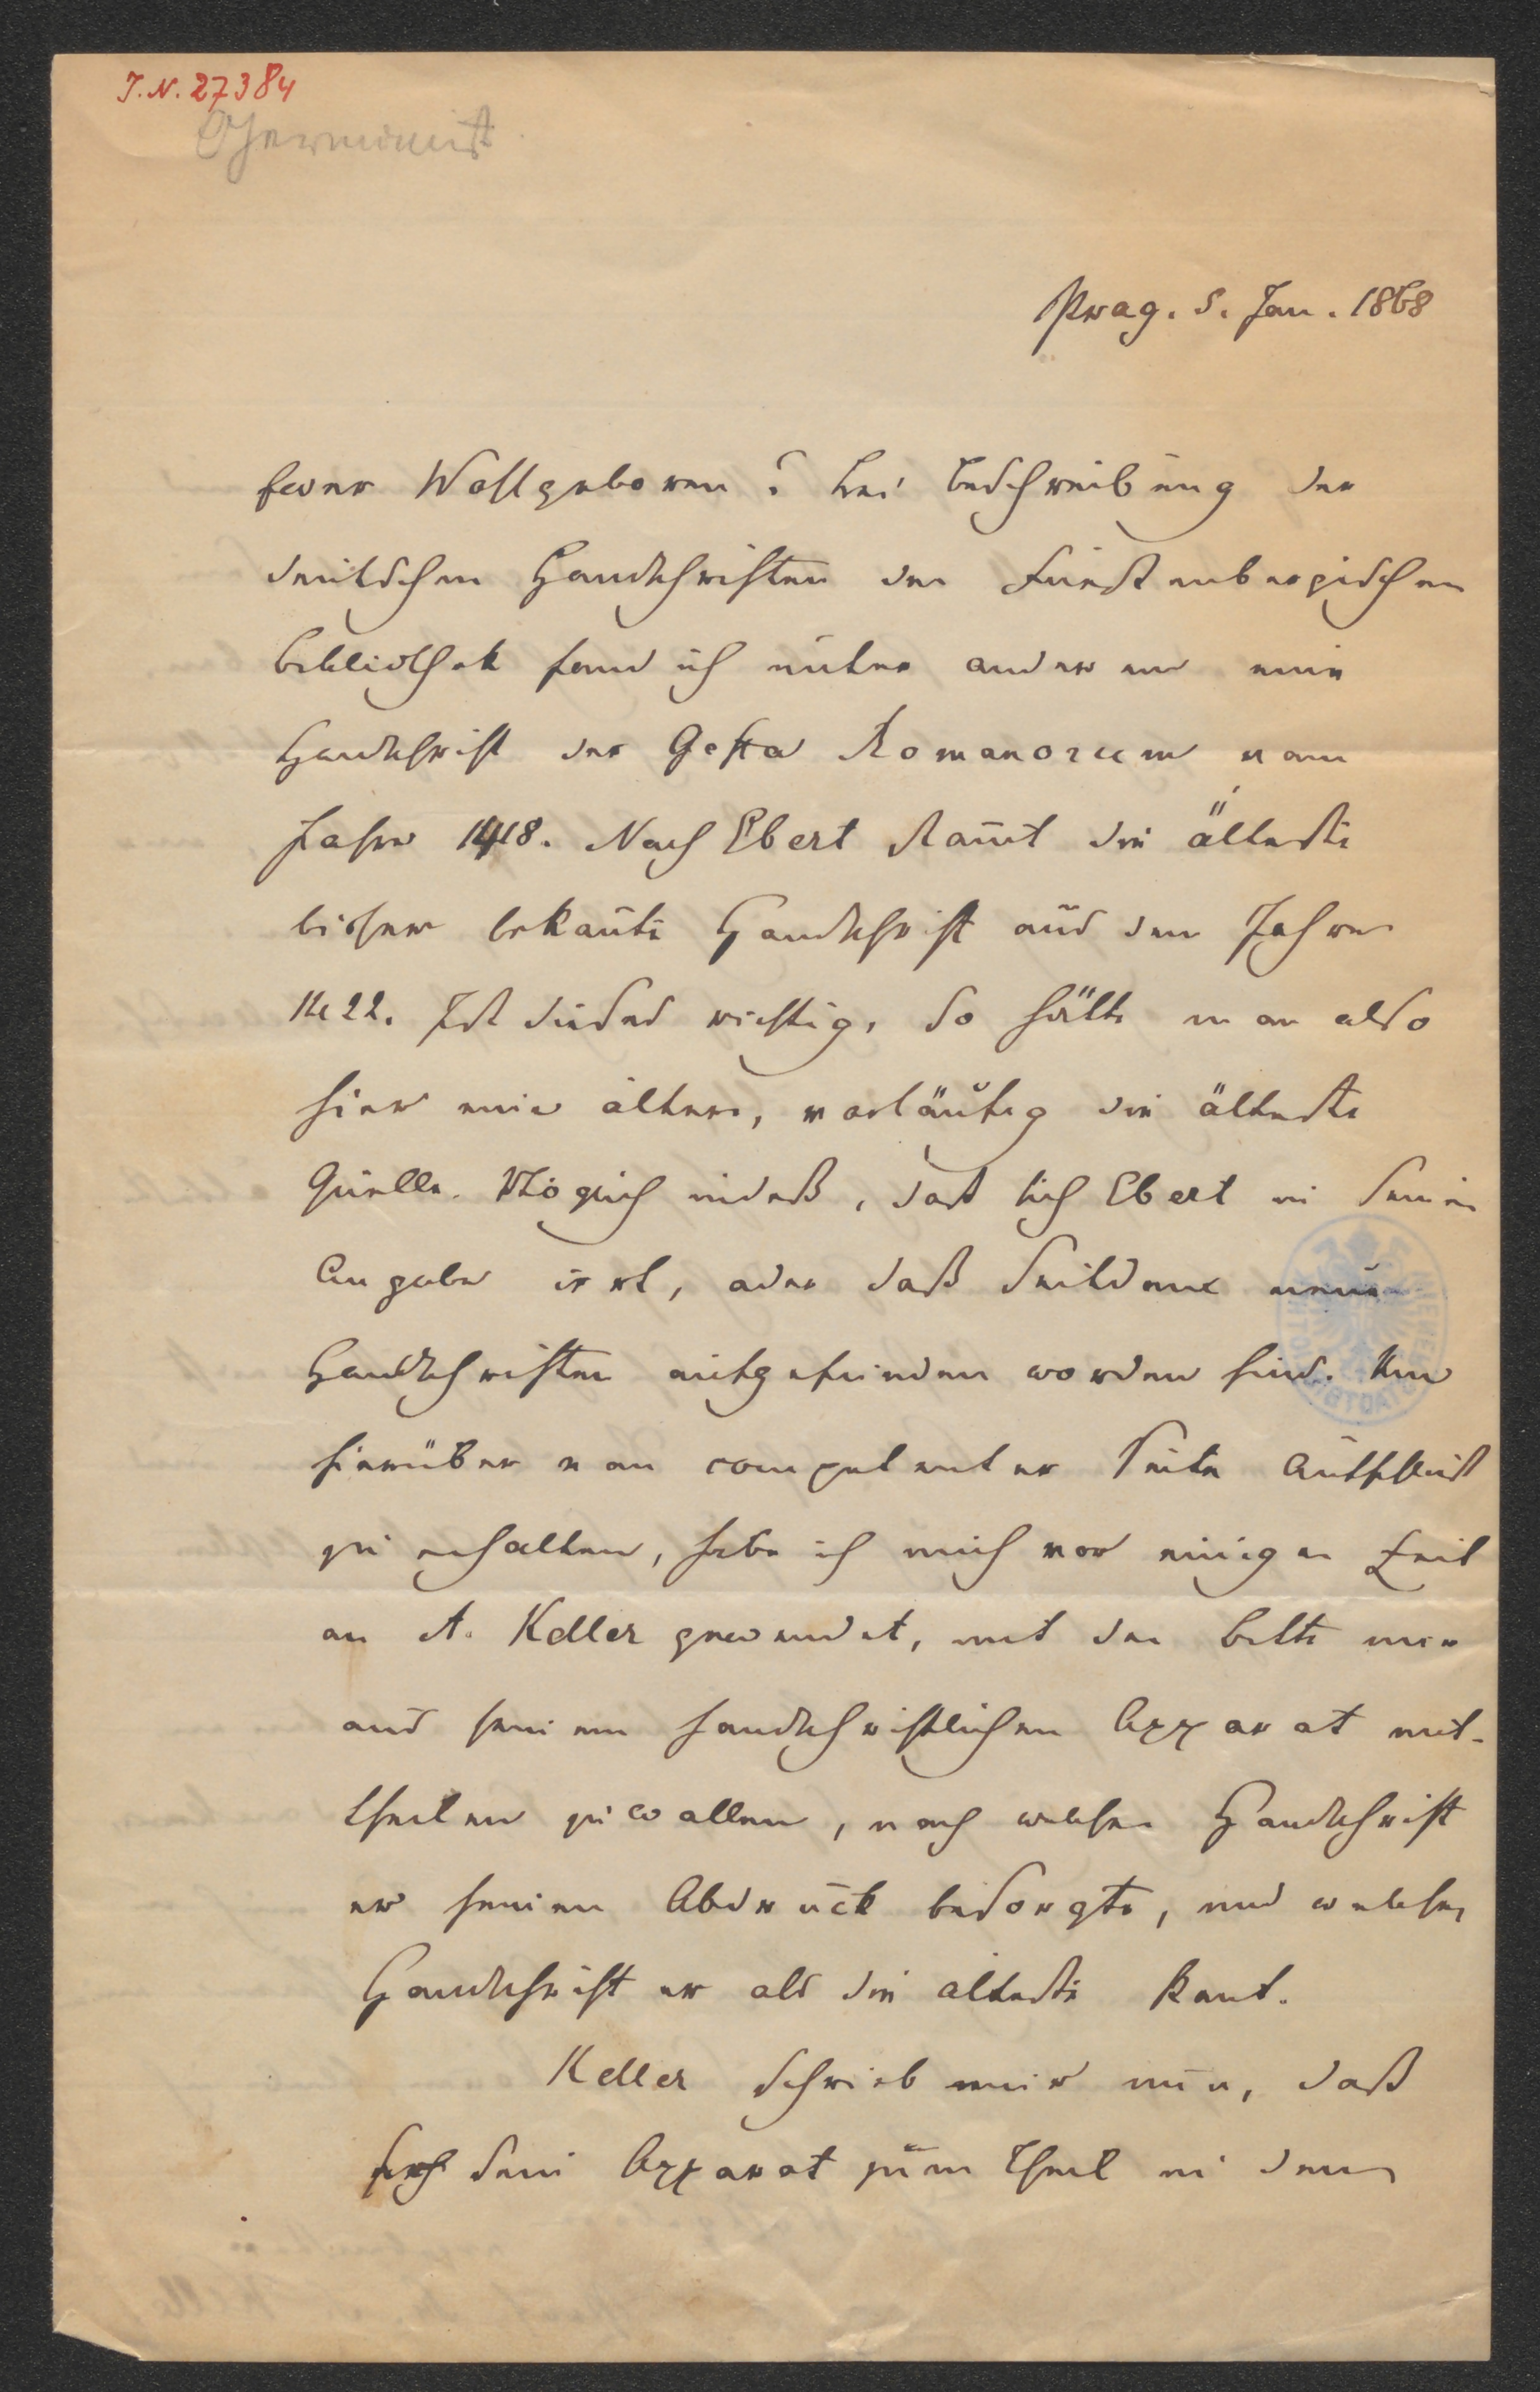 J.N. 27384
Germanist
Prag. 5. Jan. 1868
Euer Wohlgeboren! Bei Beschreibung der
deutschen Handschriften der Fürstenbergischen
Bibliothek fand ich unter anderem eine
Handschrift der Gesta Romanorum vom
Jahre 1418. Nach Ebert stam̄t die älteste
bisher bekan̄te Handschrift aus dem Jahre
1422. Ist dieses richtig, so hätte man also
hier eine ältere, vorläufig die älteste
Quelle. Möglich indeß, daß sich Ebert in seiner
Angabe irrt, oder daß seitdem neue
Handschriften aufgefunden worden sind. Um
hierüber von competenter Seite Aufschluß
zu erhalten, habe ich mich vor einiger Zeit
an A. Keller gewendet, mit der Bitte mir
aus seinem handschriftlichen Apparat mit-
theilen zu wollen, nach welcher Handschrift
er seinen Abdruck besorgte, und welche
Handschrift er als die älteste kent.
Keller schrieb mir nun, daß
sich sein Apparat zum Theil in den